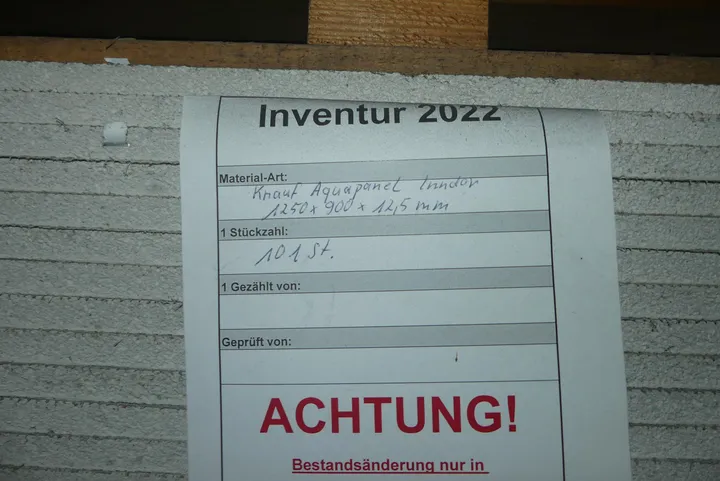 Inventur 2022
Material-Art:
Knauf Aquapanel Inndor
1250 x 900 x 12,5 mm
1 Stückzahl:
101 St.
1 Gezählt von:
Geprüft von:
ACHTUNG!
Bestandsänderung nur in